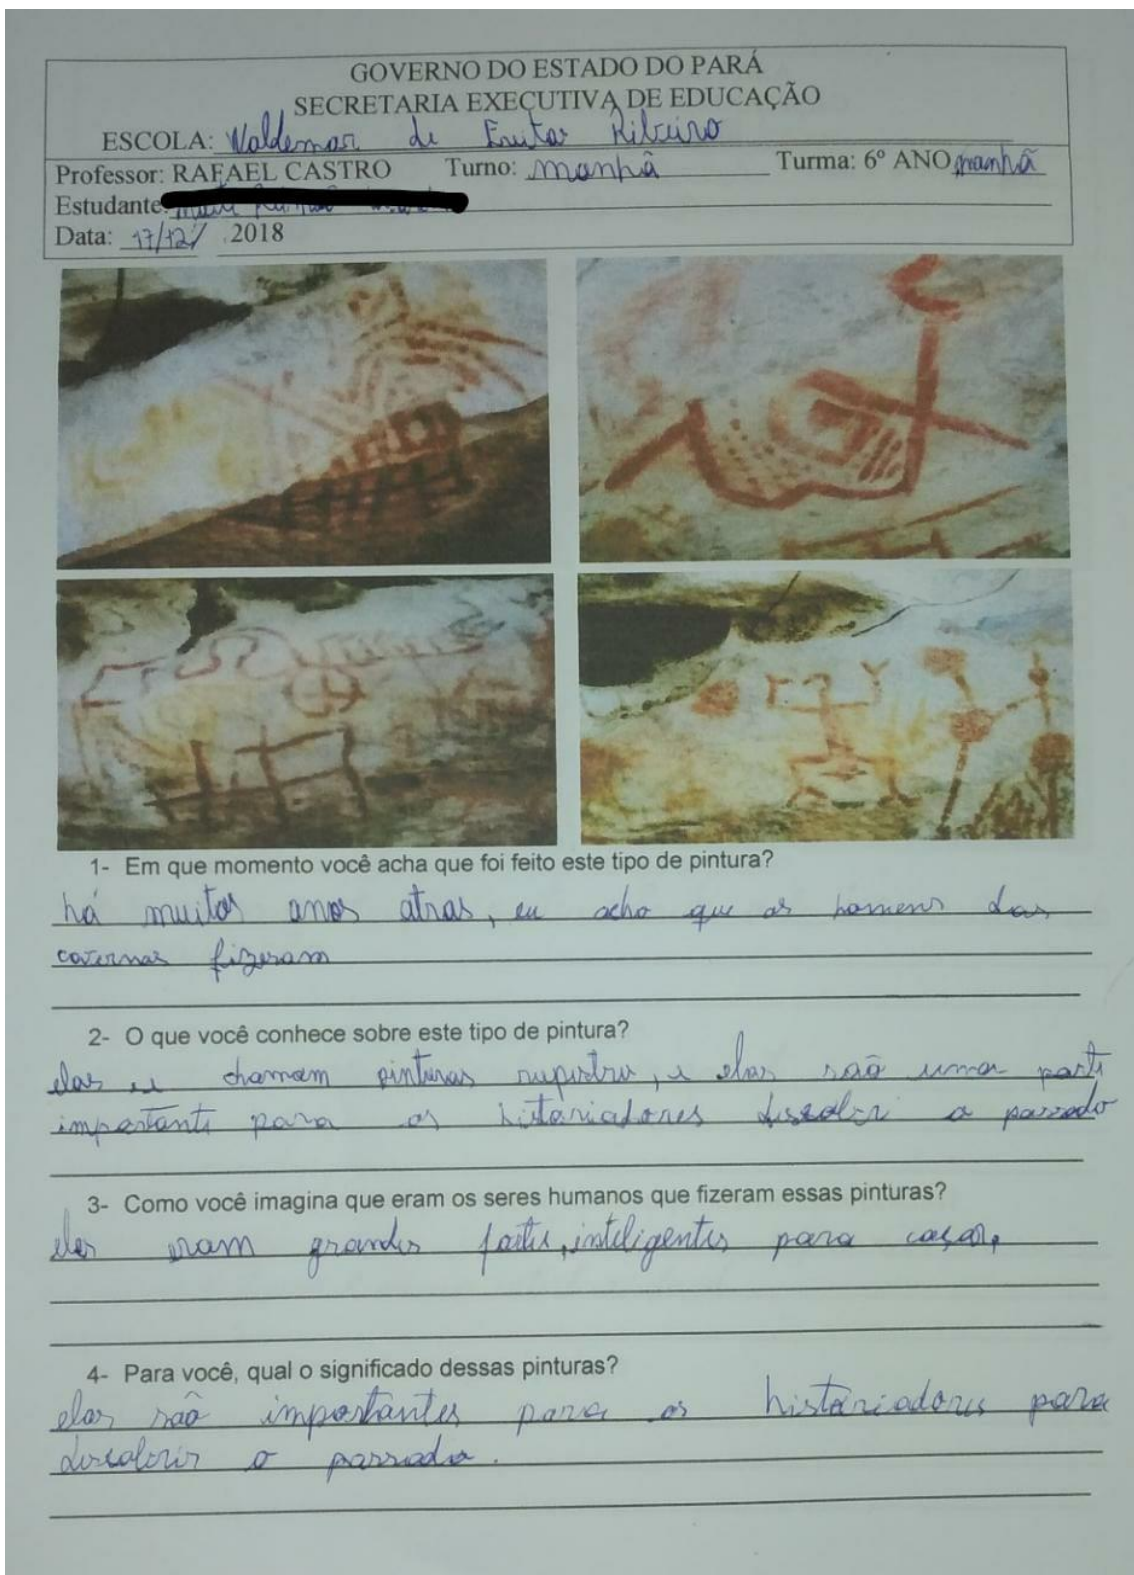 GOVERNO DO ESTADO DO PARÁ
SECRETARIA EXECUTIVA DE EDUCAÇÃO
ESCOLA: Waldemar de Freitas Ribeiro
Professor: RAFAEL CASTRO Turno: manhã Turma: 6º ANO manhã
Estudante:
Data: 17/12/ .2018
1- Em que momento você acha que foi feito este tipo de pintura?
há muitos anos atras, eu acho que os homens das
cavernas fizeram
2- O que você conhece sobre este tipo de pintura?
elas se chamam pinturas rupistre, e elas são uma parte
importante para os historiadores discobrir o passado
3- Como você imagina que eram os seres humanos que fizeram essas pinturas?
eles eram grandes fortes, inteligentes para caçar,
4- Para você, qual o significado dessas pinturas?
elas são importantes para os históriadores para
discobrir o passado.